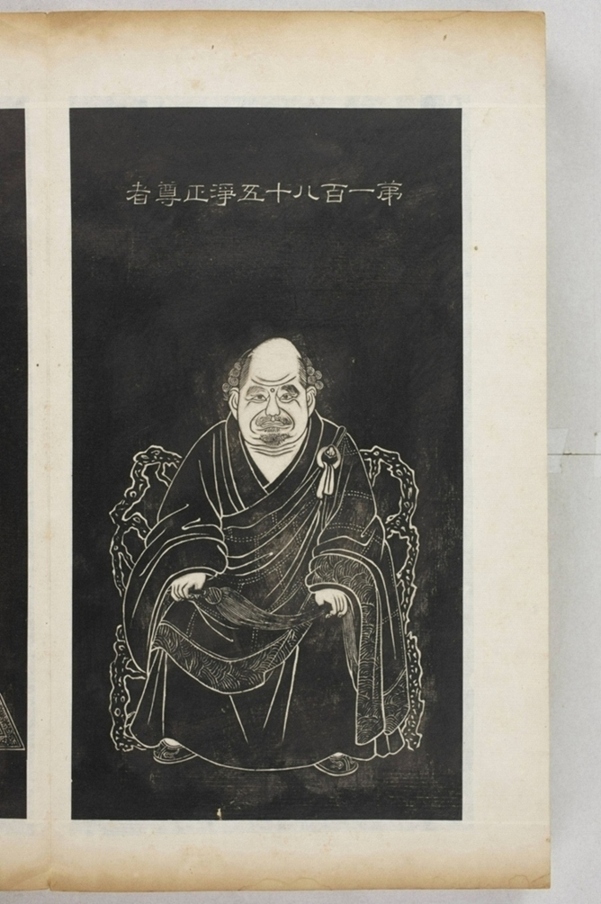 苐一百八十五淨正尊者